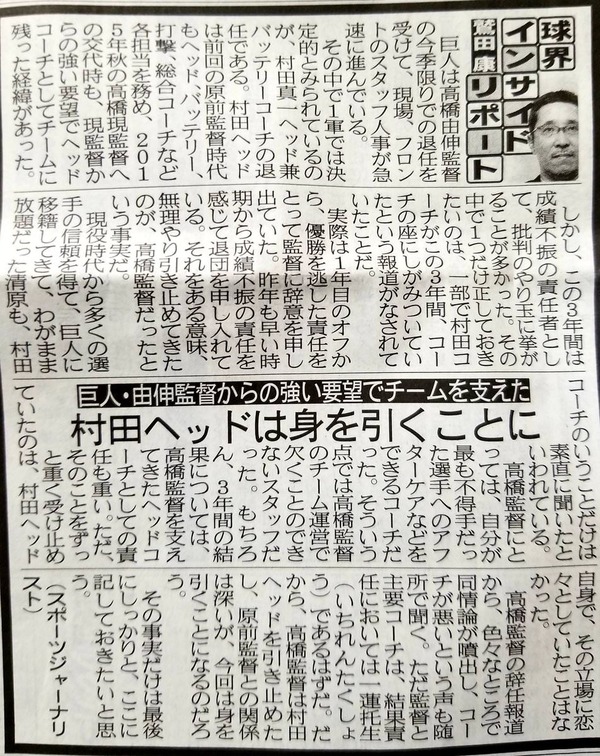 球界
インサイド
リポート
鷲田康
巨人は高橋由伸監督
の今季限りでの退任を
受けて、現場、フロン
トのスタッフ人事が急
速に進んでいる。
その中で1軍では決
定的とみられているの
が、村田真一ヘッド兼
バッテリーコーチの退
任である。村田ヘッド
は前回の原前監督時代
もヘッド、バッテリー、
打撃、総合コーチなど
各担当を務め、201
5年秋の高橋現監督へ
の交代時も、現監督か
らの強い要望でヘッド
コーチとしてチームに
残った経緯があった。
しかし、この3年間は
成績不振の責任者とし
て、批判のやり玉に挙が
ることが多かった。その
中で1つだけ正しておき
たいのは、一部で村田コ
ーチがこの3年間、コー
チの座にしがみついてい
たという報道がなされて
いたことだ。
実際は1年目のオフか
ら、優勝を逃した責任を
とって監督に辞意を申し
出ていた。昨年も早い時
期から成績不振の責任を
感じて退団を申し入れて
いる。それをある意味、
無理やり引き止めてきた
のが、高橋監督だったと
いう事実だ。
現役時代から多くの選
手の信頼を得て、巨人に
移籍してきて、わがまま
放題だった清原も、村田
巨人・由伸監督からの強い要望でチームを支えた
村田ヘッドは身を引くことに
コーチのいうことだけは
素直に聞いたと
いわれている。
高橋監督にと
っては、自分が
最も不得手だっ
た選手へのアフ
ターケアなどを
できるコーチだ
った。そういう
点では高橋監督
のチーム運営で
欠くことのでき
ないスタッフだ
った。もちろ
ん、3年間の結
果については、
高橋監督を支え
てきたヘッドコ
ーチとしての責
任も重い。ただ、
そのことをずっ
と重く受け止め
ていたのは、村田ヘッド
自身で、その立場に恋
々としていたことはな
かった。
高橋監督の辞任報道
から、色々なところで
同情論が噴出し、コー
チが悪いという声も随
所で聞く。ただ監督と
主要コーチは、結果責
任においては一蓮托生
（いちれんたくしょ
う）であるはずだ。だ
から、高橋監督は村田
ヘッドを引き止めた
し、原前監督との関係
は深いが、今回は身を
引くことになるのだろ
う。
その事実だけは最後
にしっかりと、ここに
記しておきたいと思
う。
（スポーツジャーナリ
スト）